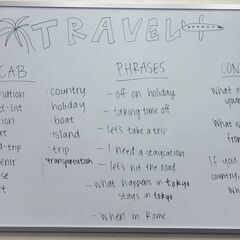 TRAVEL
CAB
nation
t-list
rt
d-trip
enir
se
· country
· holiday
· boat
· island
· trip
· transportation
PHRASES
- off on holiday
- taking time off
- let's take a trip
- I need a staycation
- let's hit the road
- What happens in tokyo
stays in tokyo
- When in Rome
CON
What is
you
What is
from
If you
country